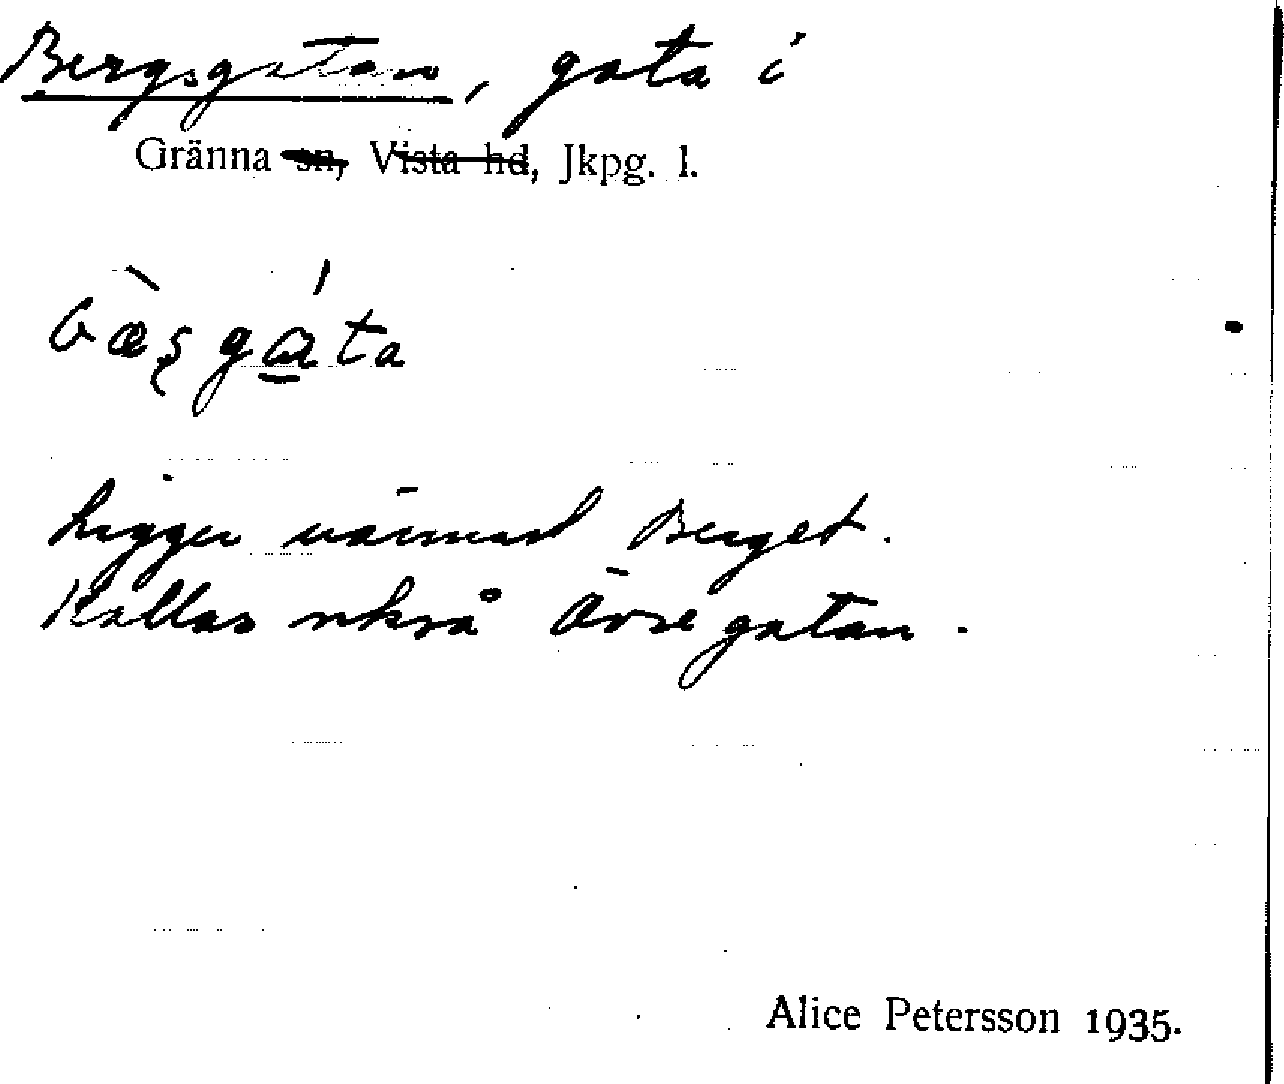 Bergsgatan, gata i
Gränna sn, Vista hd, Jkpg. l.
bæ̀ʂgáta
Ligger närmast Berget.
Kallas också Övre gatan.
Alice Petersson 1935.